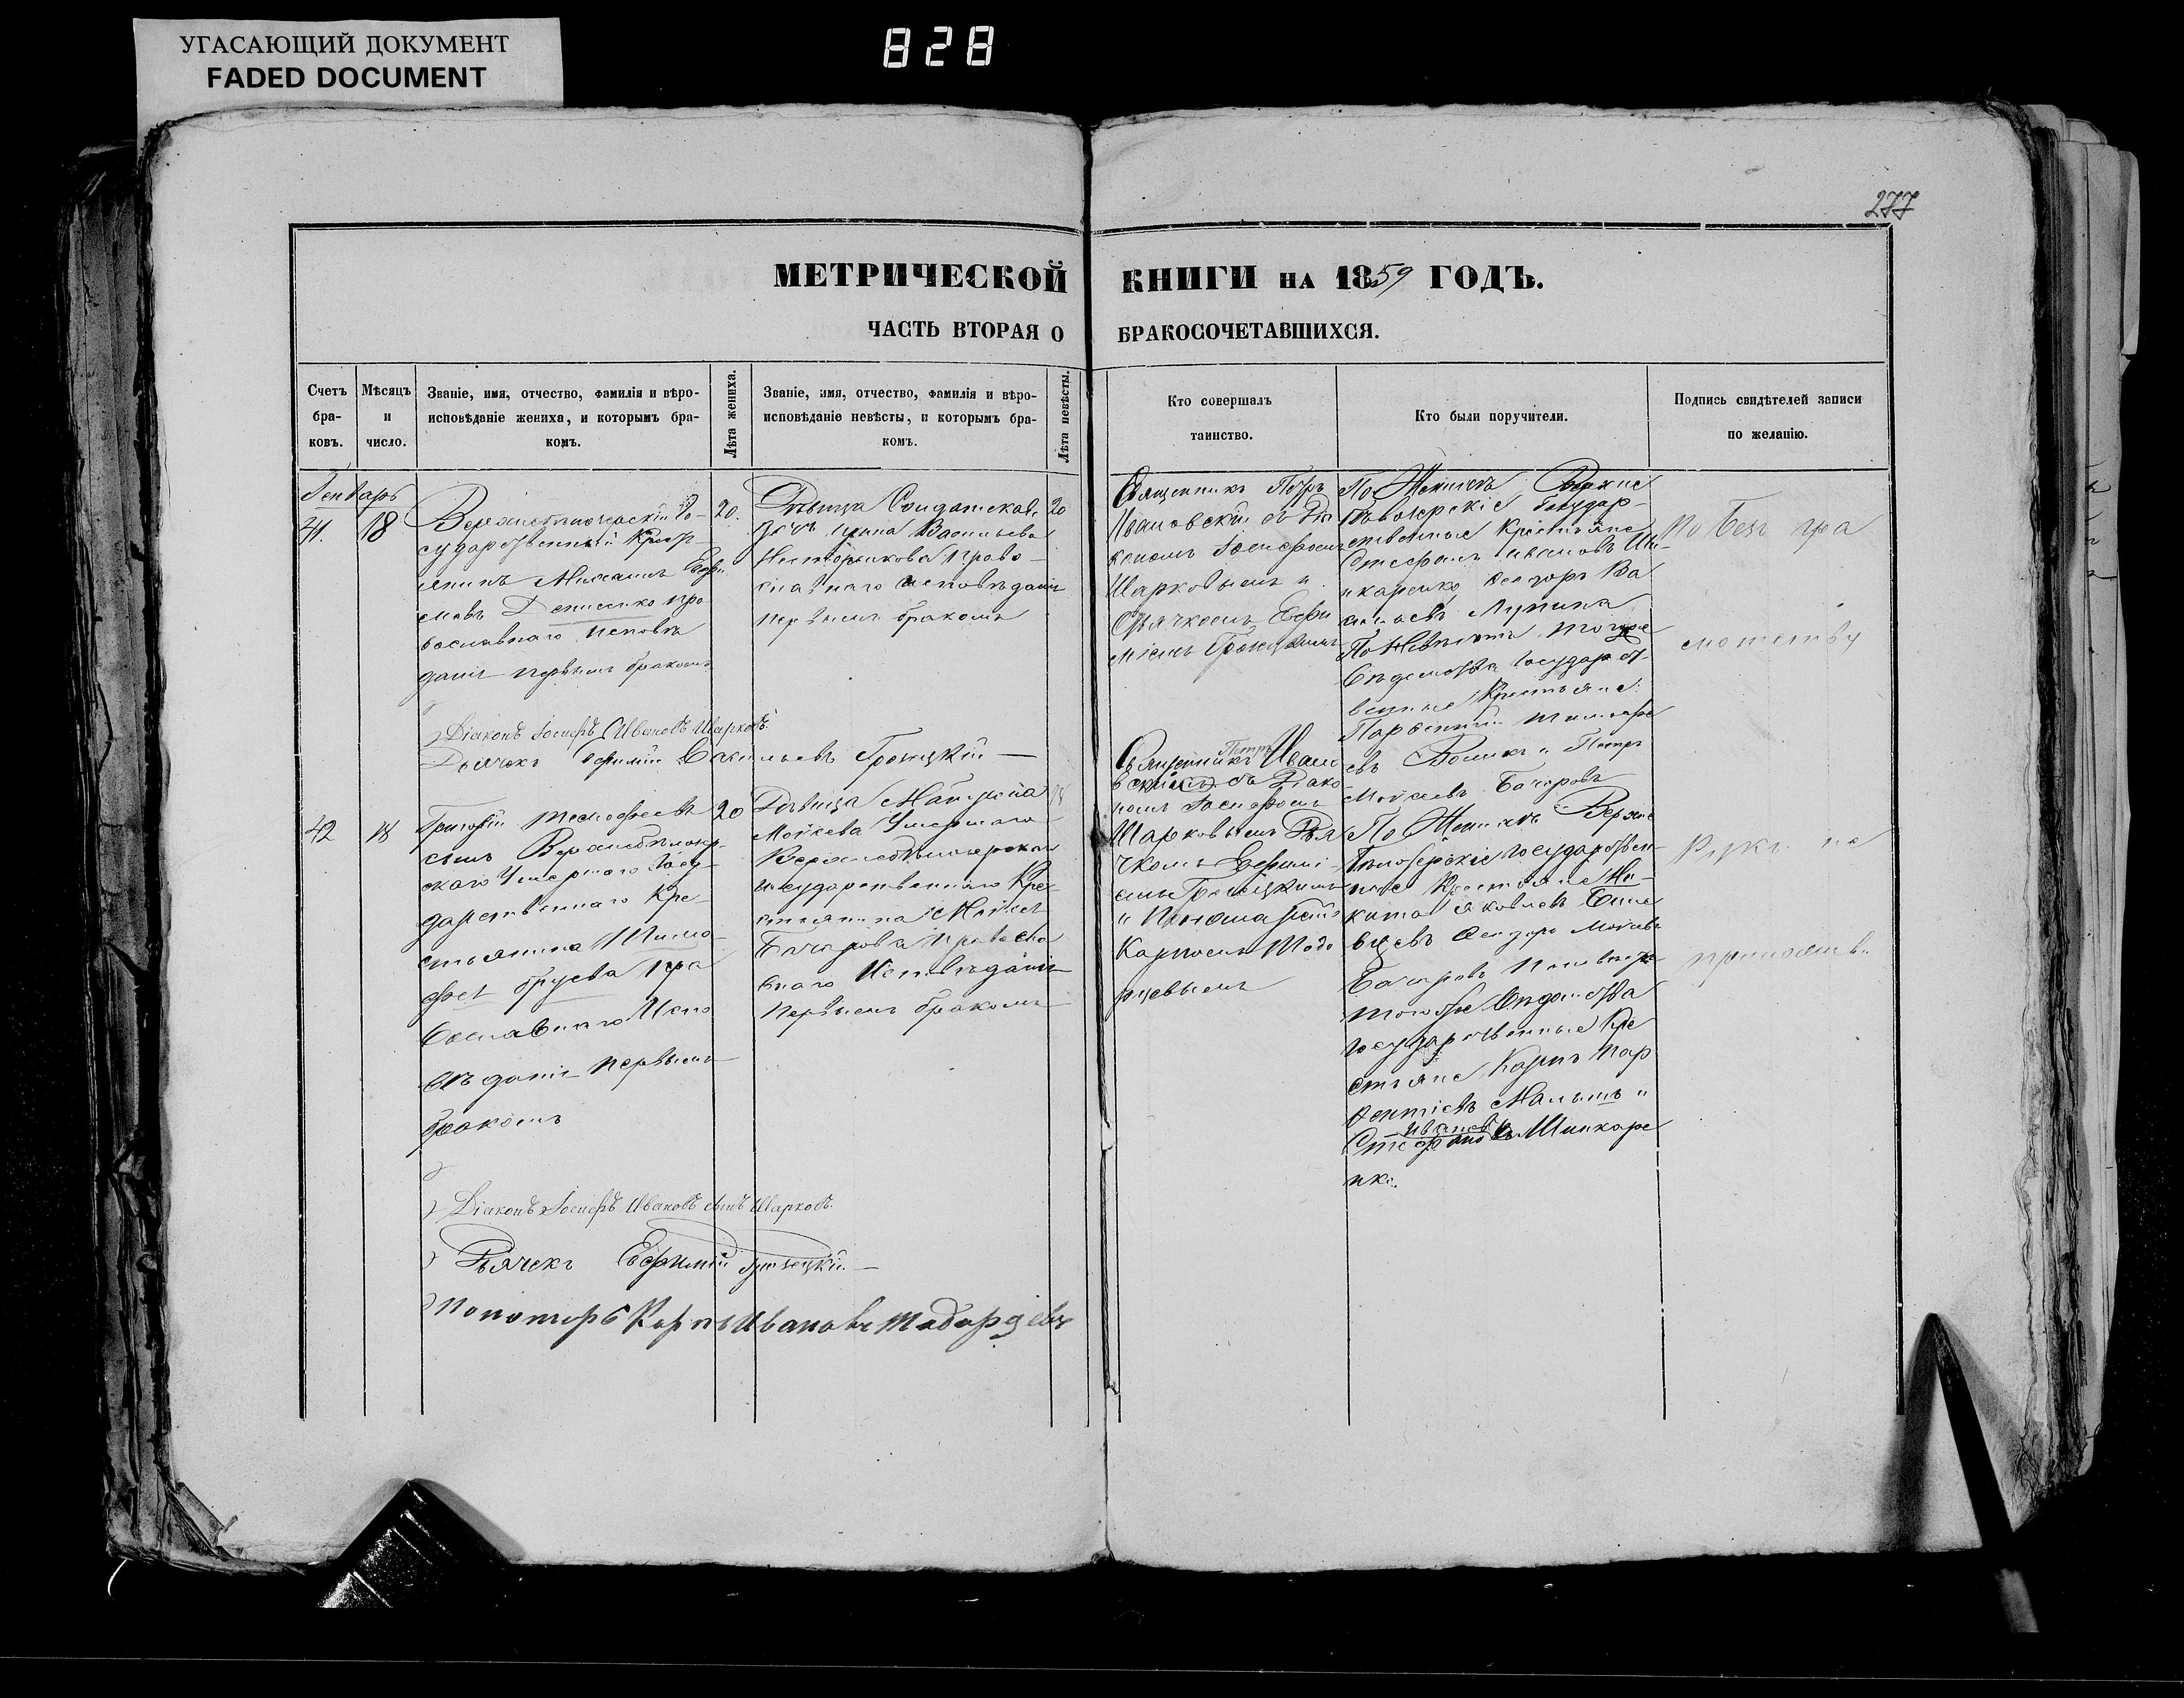 УГАСАЮЩИЙ ДОКУМЕНТ
FADED DOCUMENT
828
277
МЕТРИЧЕСКОЙ КНИГИ НА 1859 ГОДЪ.
ЧАСТЬ ВТОРАЯ О БРАКОСОЧЕТАВШИХСЯ.
Счетъ бра-ковъ.
Мѣсяцъ и число.
Званіе, имя, отчество, фамилія и вѣро-
исповѣданіе жениха, и которымъ бра-
комъ.
Лѣта жениха.
Званіе, имя, отчество, фамилія и вѣро-
исповѣданіе невѣсты, и которымъ бра-
комъ.
Лѣта невѣсты.
Кто совершалъ
таинство.
Кто были поручители.
Подпись свидѣтелей записи
по желанію.
Генварь
41. 18
сударственный Крест-
янинъ Михаилъ Ефи
мовъ Денисенко пра
вославнаго исповѣ
данія первымъ бракомъ
20.
Дѣвица Солдатская
дочь Васильева
право-
славнаго исповѣданія
первымъ бракомъ
20
Священникъ Петръ
Ивановскій съ Діа
кономъ Іосифомъ
Шарковымъ и
Дьячкомъ Ефи
міемъ Троицкимъ
По Женихѣ Верхне
Бѣлозерскіе Государ-
ственные Крестьяне
Стефанъ Ивановъ Ши-
нкаренко Ва
сильевъ
По Невѣстѣ того же
Вѣдомства Государст-
венные Крестьяне
Парфентій Тимофе
евъ и Петръ
Моисеевъ Бачаровъ
По безгра
мотству
Діаконъ Іосифъ Ивановъ Шарковъ
Дьячекъ Ефимій Васильевъ Троицкій
42 18
Григорій Тимофеевъ
сынъ Верхнебѣлозер-
скаго Умершаго Госу-
дарственнаго Кре-
стьянина Тимо-
фея пра
вославнаго Испо
вѣданія первымъ
бракомъ
20
Дѣвица
Моисеева Умершаго
Верхнебѣлозерскаго
государственнаго Кре-
стьянина Моисея
Бачарова Правосла
внаго Исповѣданія
первымъ бракомъ
18
Священникъ Петръ Иван
овскій съ Діако
номъ Іосифомъ
Шарковымъ Дья
чкомъ Ефимі-
емъ Троицкимъ
и Пономаремъ
Карпомъ Тодо
рцевымъ
По Женихѣ Верхне
Бѣлозерскіе государствен-
ные Крестьяне Ни-
кита Яковлевъ
Моисеевъ
Бачаровъ По невѣстѣ
того же Вѣдомства
государственные Кре
стьяне Карпъ Пар
фентіевъ Малышъ и
Стефанъ Ивановъ Шинкаре
нко.
Діаконъ Іосифъ Ивановъ сынъ Шарковъ.
Дьячекъ Ефимій Троицкій
Пономарь Карпъ Ивановъ Тодорцевъ